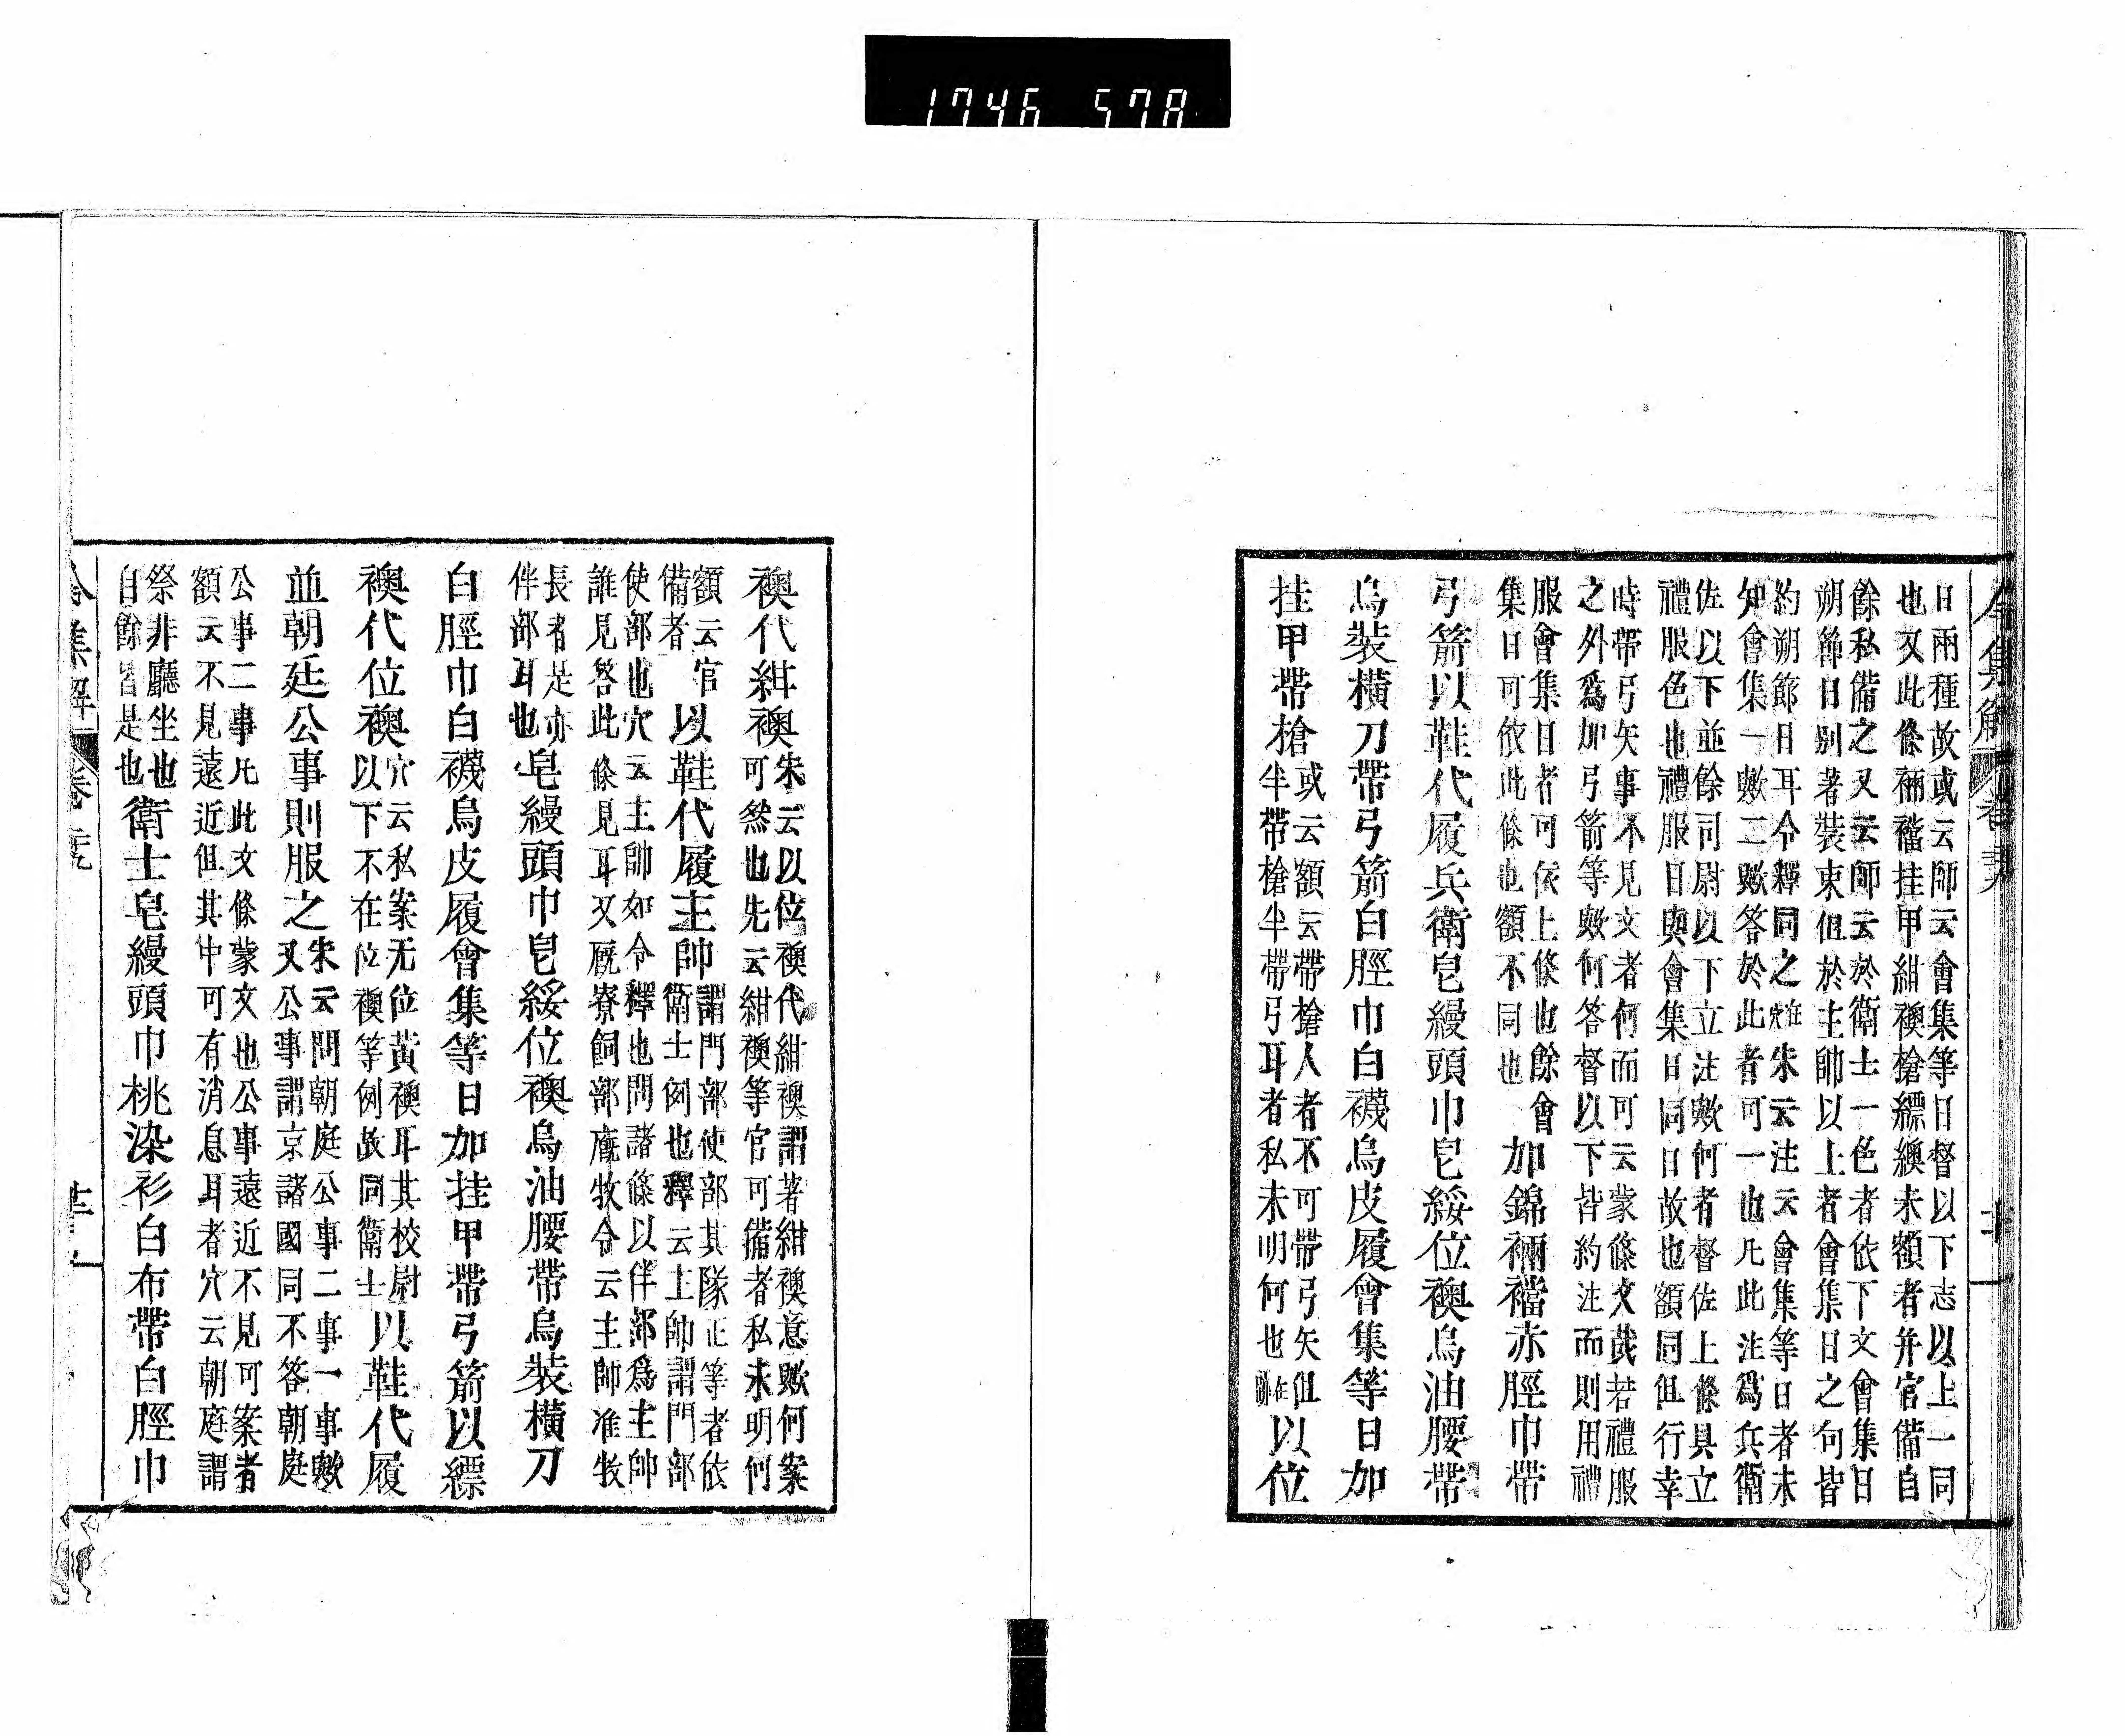 1746 578
日兩種故或云師云會集等日督以下志以上一同
也又此條裲襠挂甲紺襖槍纓纈未額者并官備自
餘私備之又云師云於衛士一色者依下文會集日
朔節日別著裝束但於主帥以上者會集日之句皆
約朔節日耳令釋同之在穴朱云注云會集等日者未
知會集一歟二歟答於此者可一也凡此注爲兵衛
佐以下並餘司尉以下立注歟何者督佐上條具立
禮服色也禮服日與會集日同日故也額同但行幸
時帶弓矢事不見文者何而可云蒙條文哉若禮服
之外爲加弓箭等歟何答督以下皆約注而則用禮
服會集日者可依上條也餘會
集日可依此條也額不同也
加錦裲襠赤脛巾帶
弓箭以鞋代履兵衛皂縵頭巾皂綏位襖烏油腰帶
烏裝橫刀帶弓箭白脛巾白襪烏皮履會集等日加
挂甲帶槍
或云額云帶槍人者不可帶弓矢但
半帶槍半帶弓耳者私未明何也
以位
襖代紺襖
朱云以位襖代紺襖謂著紺襖意歟何案
可然也先云紺襖等官可備者私未明何
額云官
備者
以鞋代履主帥
謂門部使部其隊正等者依
衛士例也釋云主帥謂門部
使部也穴云主帥如令釋也問諸條以伴部爲主帥
誰見答此條見耳又厩寮飼部鷹牧令云主師准牧
長者是亦
伴部耳也
皂縵頭巾皂綏位襖烏油腰帶烏裝橫刀
白脛巾白襪烏皮履會集等日加挂甲帶弓箭以縹
襖代位襖
穴云私案无位黄襖耳其校尉
以下不在位襖等例故同衛士
以鞋代履
並朝廷公事則服之
朱云問朝庭公事二事一事歟
又公事謂京諸國同不答朝庭
公事二事凡此文條蒙文也公事遠近不見可案者
額云不見遠近但其中可有消息耳者穴云朝庭謂
祭非廳坐也
自餘皆是也
衛士皂縵頭巾桃染衫白布帶白脛巾